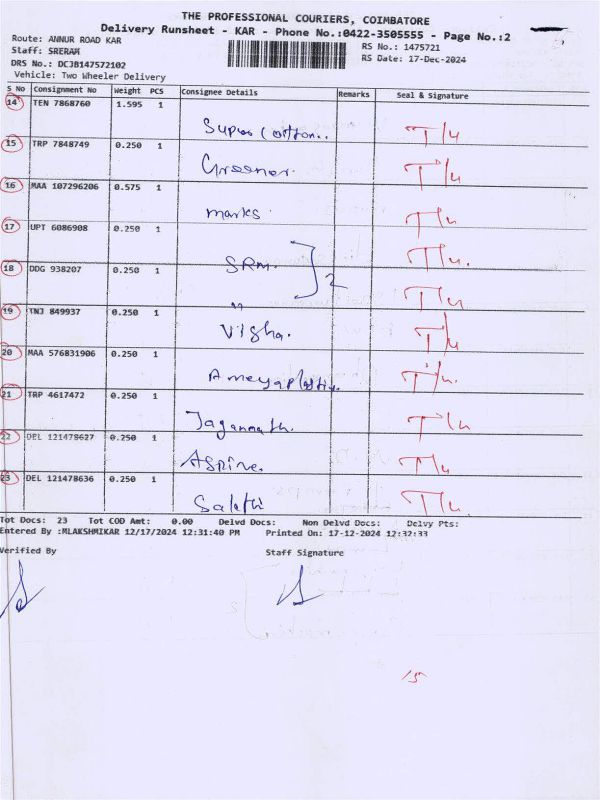 THE PROFESSIONAL COURIERS, COIMBATORE
Delivery Runsheet - KAR - Phone No.:0422-3505555 - Page No.:2
Route: ANNUR ROAD KAR
RS No.: 1475721
Staff: SRERAM
RS Date: 17-Dec-2024
DRS No.: DCJB147572102
Vehicle: Two Wheeler Delivery
S No Consignment No Weight PCS Consignee Details Remarks Seal & Signature
14 TEN 7868760 1.595 1
15 TRP 7848749 0.250 1
Greener.
16 MAA 107296206 0.575 1
marks
17 UPT 6086908 0.250 1
SRM. 2
18 DDG 938207 0.250 1
19 TNJ 849937 0.250 1
Vigha.
20 MAA 576831906 0.250 1
21 TRP 4617472 0.250 1
Jagannath.
22 DEL 121478627 0.250 1
Aspire.
23 DEL 121478636 0.250 1
Salethi
Tot Docs: 23 Tot COD Amt: 0.00 Delvd Docs: Non Delvd Docs: Delvy Pts:
Entered By :MLAKSHMIKAR 12/17/2024 12:31:40 PM Printed On: 17-12-2024 12:32:33
Verified By Staff Signature
15